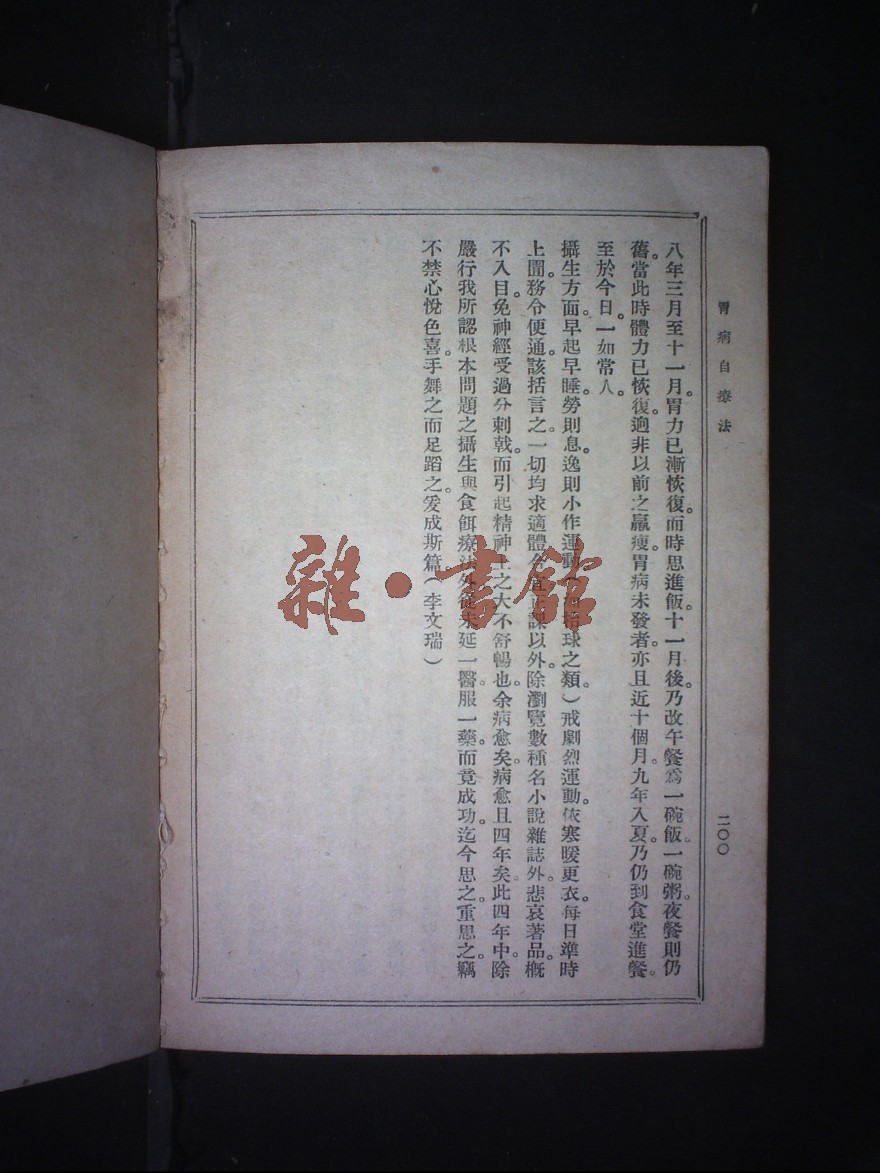 胃病自療法
二〇〇
八年三月至十一月。胃力已漸恢復。而時思進飯。十一月後。乃改午餐爲一碗飯。一碗粥。夜餐則仍
舊。當此時體力已恢復。逈非以前之羸瘦。胃病未發者。亦且近十個月。九年入夏。乃仍到食堂進餐。
至於今日。一如常人。
攝生方面。早起早睡。勞則息。逸則小作運動。球之類。）戒劇烈運動。依寒暖更衣。每日準時
上圊。務令便通。該括言之。一切均求適體合宜。課以外。除瀏覽數種名小說雜誌外。悲哀著品。槪
不入目。免神經受過分刺戟。而引起精神上之大不舒暢也。余病愈矣。病愈且四年矣。此四年中。除
嚴行我所認根本問題之攝生與食餌療法外。從未延一醫。服一藥。而竟成功。迄今思之。重思之。竊
不禁心悅色喜。手舞之而足蹈之。爰成斯篇（李文瑞）
雜·書館